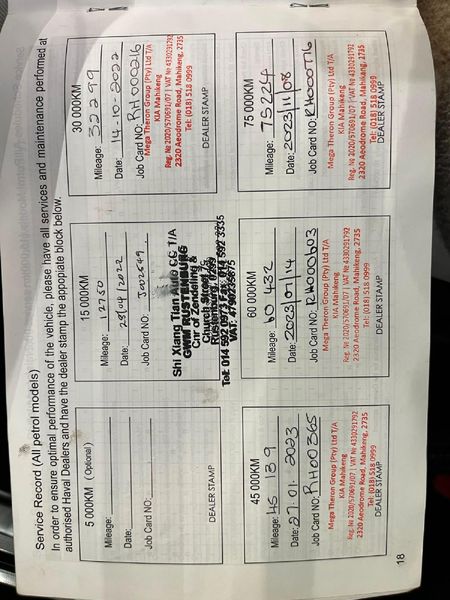 Service Record (All petrol models)
In order to ensure optimal performance of the vehicle, please have all services and maintenance performed at
authorised Haval Dealers and have the dealer stamp the appopiate block below.
5 000KM (Optional)
Mileage:
Date:
Job Card NO:
DEALER STAMP
15 000KM
Mileage: 12730
Date: 28/04/2022
Job Card NO: J002649
Shi Xiang Tian Auto CC T/A
GWM RUSTENBURG
Cnr of Zendeling &
Church Street
Rustenburg
Tel: 014 592 0973 Fax: 014 592 3335
VAT: 4790235675
30 000KM
Mileage: 32299
Date: 14-10-2022
Job Card NO: RH000216
Mega Theron Group (Pty) Ltd T/A
KIA Mahikeng
Reg. № 2020/570691/07 | VAT № 4330291792
2320 Aeodrome Road, Mahikeng, 2735
Tel: (018) 518 0999
DEALER STAMP
45 000KM
Mileage: 45 139
Date: 27.01.2023
Job Card NO: RH00365
Mega Theron Group (Pty) Ltd T/A
KIA Mahikeng
Reg. № 2020/570691/07 | VAT № 4330291792
2320 Aeodrome Road, Mahikeng, 2735
Tel: (018) 518 0999
DEALER STAMP
60 000KM
Mileage: 60 432
Date: 2023/07/14
Job Card NO: RH000603
Mega Theron Group (Pty) Ltd T/A
KIA Mahikeng
Reg. № 2020/570691/07 | VAT № 4330291792
2320 Aeodrome Road, Mahikeng, 2735
Tel: (018) 518 0999
DEALER STAMP
75 000KM
Mileage: 75224
Date: 2023/11/08
Job Card NO: RH000776
Mega Theron Group (Pty) Ltd T/A
KIA Mahikeng
Reg. № 2020/570691/07 | VAT № 4330291792
2320 Aeodrome Road, Mahikeng, 2735
Tel: (018) 518 0999
DEALER STAMP
18